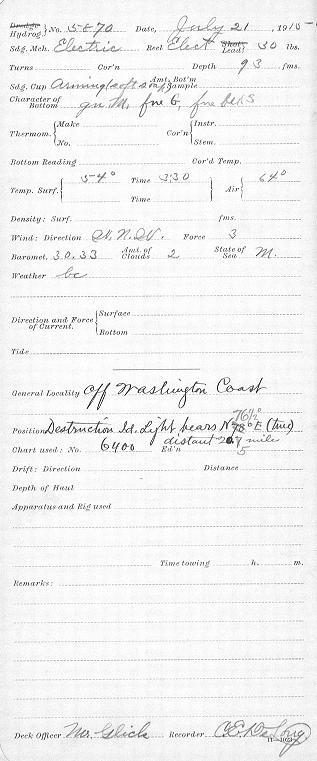 Dredge Hydrog } No. 5870 Date, July 21, 191
Sdg. Mch. Electric Reel Elect Shot Lead 30 lbs.
Turns Cor'n Depth 93 fms.
Sdg. Cup Arming (soft soap) Amt. Bot'm Sample
Character of Bottom gn M, fne G, fne bk S
Thermom. { Make Cor'n { Instr.
No. Stem.
Bottom Reading Cor'd Temp.
Temp. Surf. { 54° Time 3:30 Air { 64°
Time
Density: Surf. fms.
Wind: Direction W.N.W. Force 3
Baromet. 30.33 Amt. of Clouds 2 State of Sea M.
Weather bc
Direction and Force of Current. { Surface
Bottom
Tide
General Locality Off Washington Coast
76½°
Position Destruction Id. Light bears N 78° E (true)
distant 20.7 mile
Chart used: No. 6400 Ed'n 5
Drift: Direction Distance
Depth of Haul
Apparatus and Rig used
Time towing h. m.
Remarks:
Deck Officer Mr. Glick Recorder C.E. DeLong